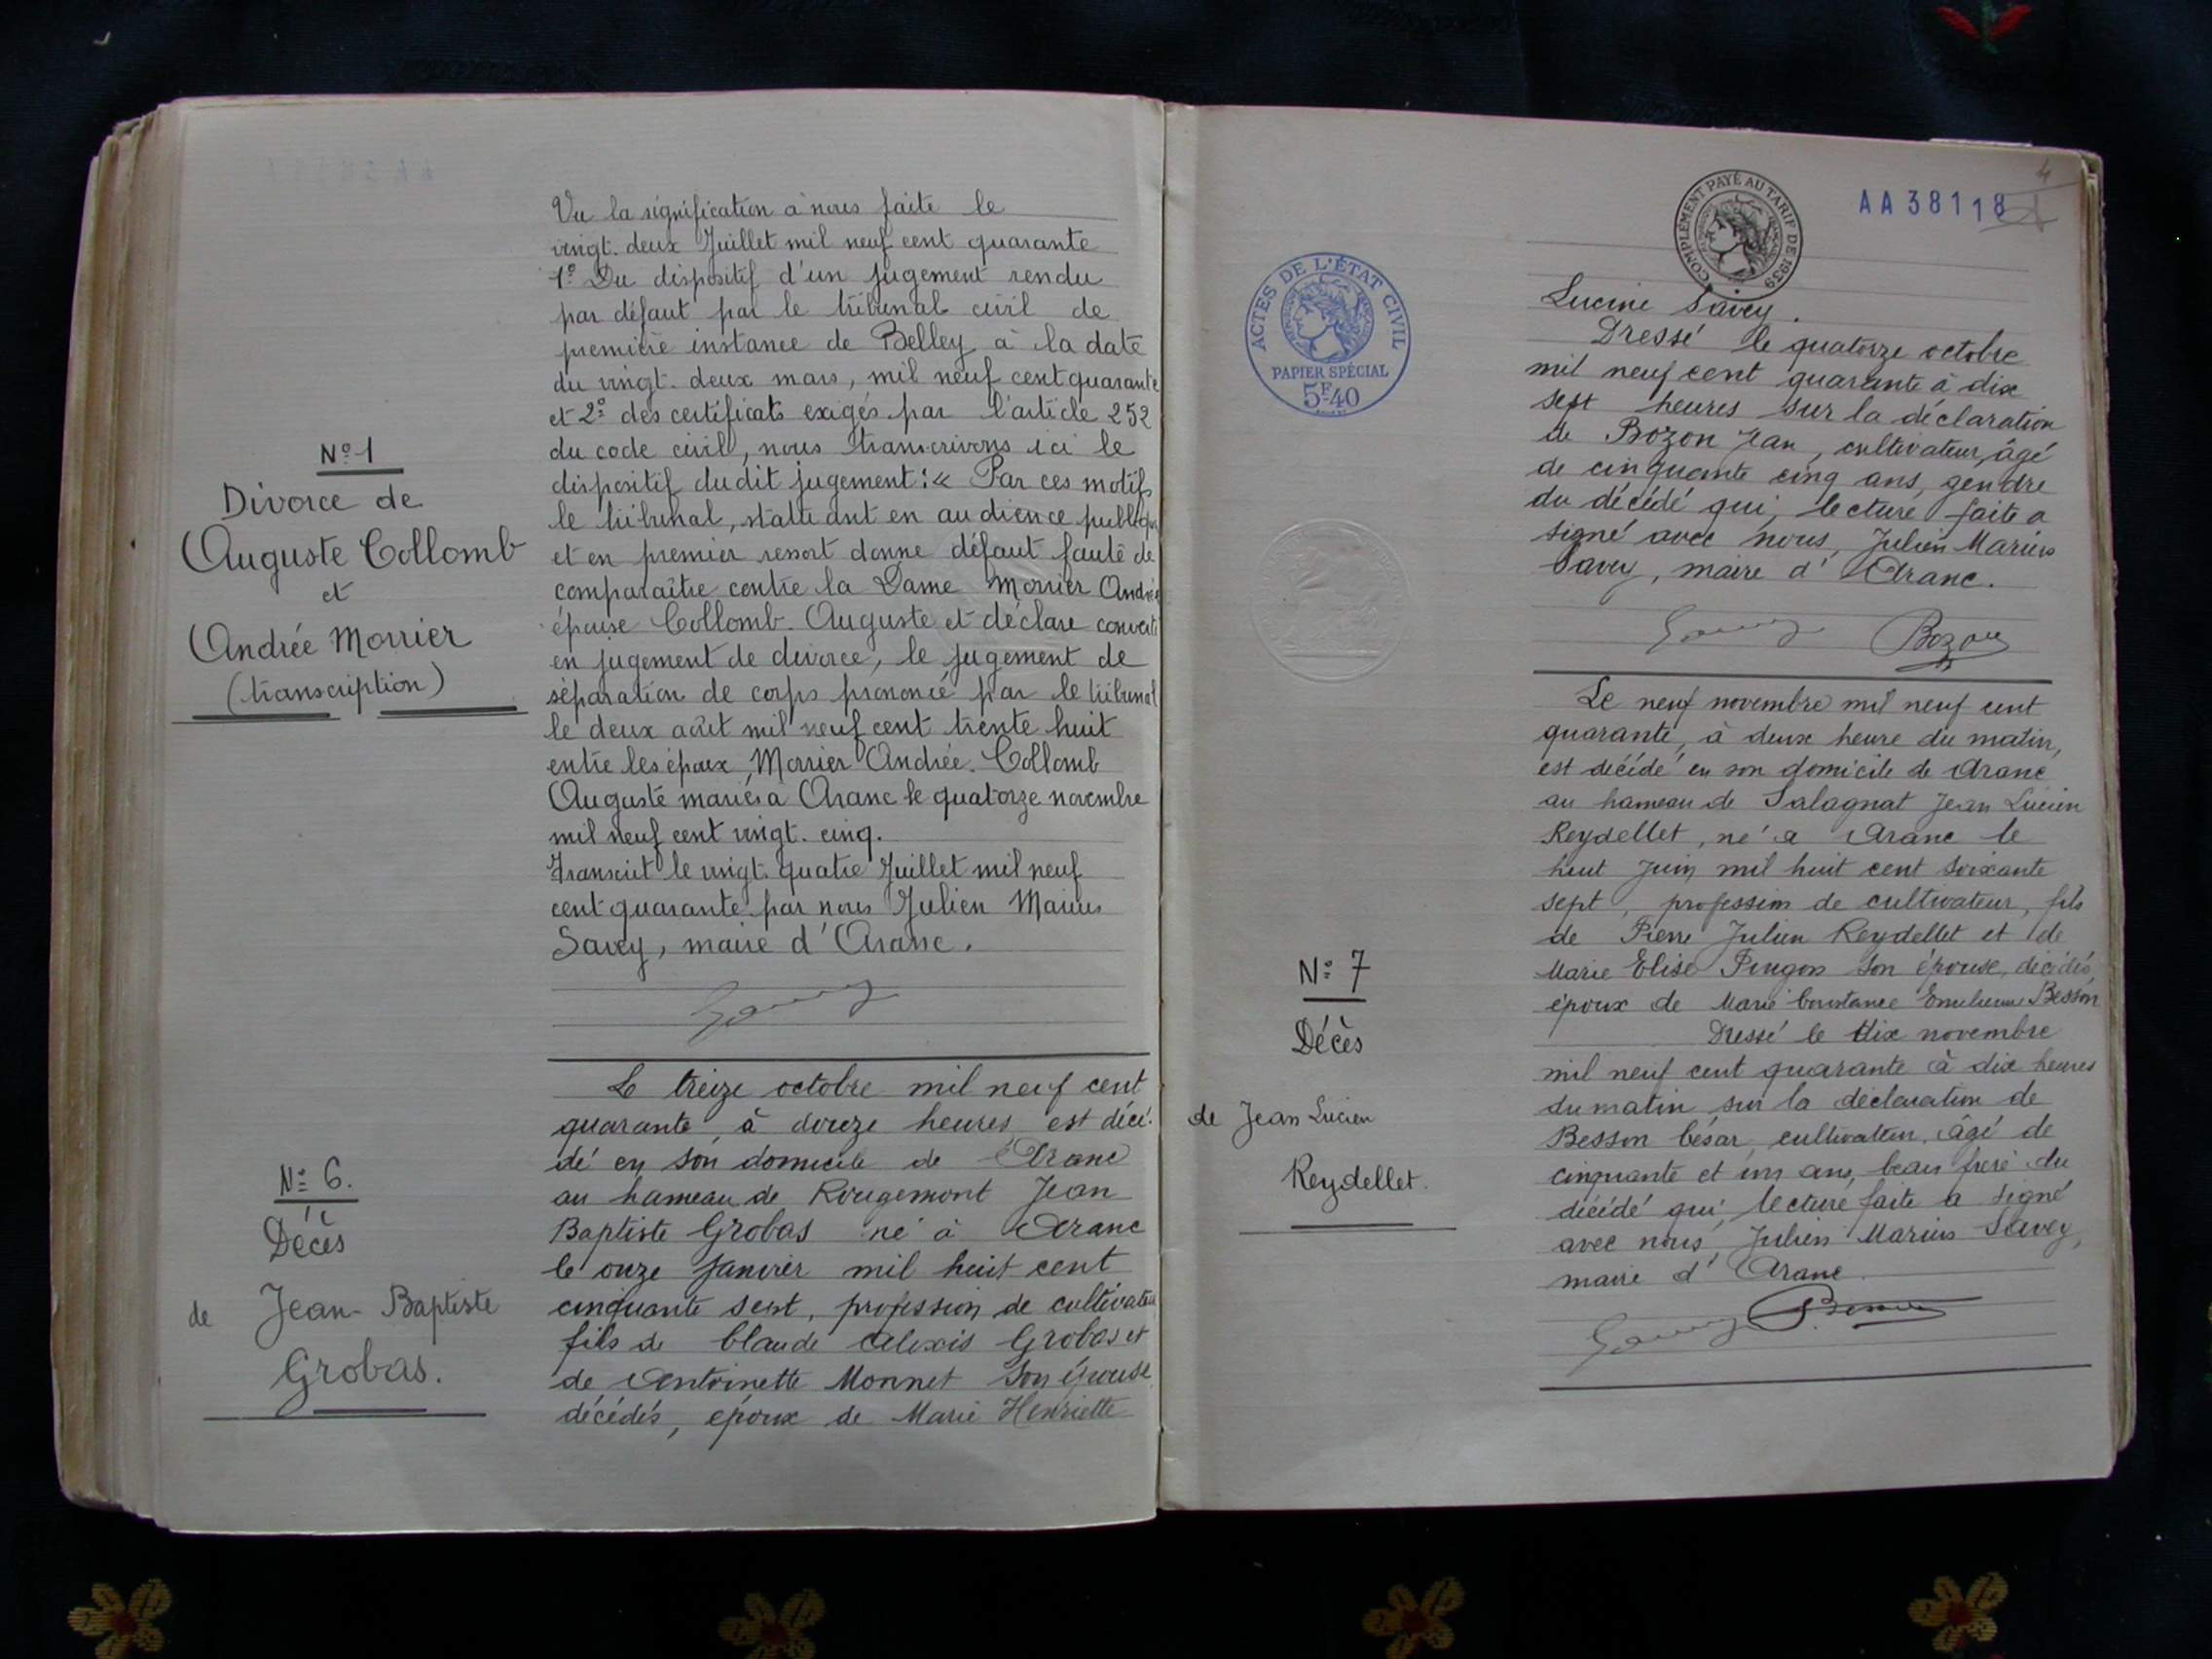 N° 1
Divorce de
Auguste Collomb
et
Andrée Morrier
(transcription)
Vu la signification à nous faite le
vingt-deux Juillet mil neuf cent quarante
1° Du dispositif d'un jugement rendu
par défaut par le tribunal civil de
première instance de Belley à la date
du vingt-deux mars, mil neuf cent quarante
et 2° des certificats exigés par l'article 252
du code civil, nous transcrivons ici le
dispositif dudit jugement : « Par ces motifs
le tribunal, statuant en audience publique
et en premier ressort donne défaut faute de
comparaître contre la Dame Morrier Andrée
épouse Collomb Auguste et déclare converti
en jugement de divorce, le jugement de
séparation de corps prononcé par le tribunal
le deux août mil neuf cent trente huit
entre les époux, Morrier Andrée. Collomb
Auguste mariés à Aranc le quatorze novembre
mil neuf cent vingt-cinq.
Transcrit le vingt-quatre Juillet mil neuf
cent quarante par nous Julien Marius
Savey, maire d'Aranc.
Savey
N° 6.
Décès
de Jean-Baptiste
Grobas.
Le treize octobre mil neuf cent
quarante, à douze heures, est décé-
dé en son domicile de Aranc
au hameau de Rougemont Jean
Baptiste Grobas né à Aranc
le onze Janvier mil huit cent
cinquante sept, profession de cultivateur
fils de Claude Alexis Grobas et
de Antoinette Monnet son épouse
décédés, époux de Marie Henriette
COMPLÉMENT PAYÉ AU TARIF DE 1939
AA 38118
4
ACTES DE L'ÉTAT CIVIL
PAPIER SPÉCIAL
5F40
Lucine Savey.
Dressé le quatorze octobre
mil neuf cent quarante à dix
sept heures sur la déclaration
de Bozon Jean, cultivateur, âgé
de cinquante cinq ans, gendre
du décédé qui, lecture faite a
signé avec nous, Julien Marius
Savey, maire d'Aranc.
Savey Bozon
N° 7
Décès
de Jean Lucien
Reydellet.
Le neuf novembre mil neuf cent
quarante, à deux heure du matin,
est décédé en son domicile de Aranc
au hameau de Salagnat Jean Lucien
Reydellet, né à Aranc le
huit Juin mil huit cent soixante
sept, profession de cultivateur, fils
de Pierre Julien Reydellet et de
Marie Elise Pingon son épouse, décédés,
époux de Marie Constance Emilienne Besson
Dressé le dix novembre
mil neuf cent quarante à dix heures
du matin sur la déclaration de
Besson César, cultivateur, âgé de
cinquante et un ans, beau frère du
décédé qui, lecture faite a signé
avec nous, Julien Marius Savey,
maire d'Aranc
Savey Besson